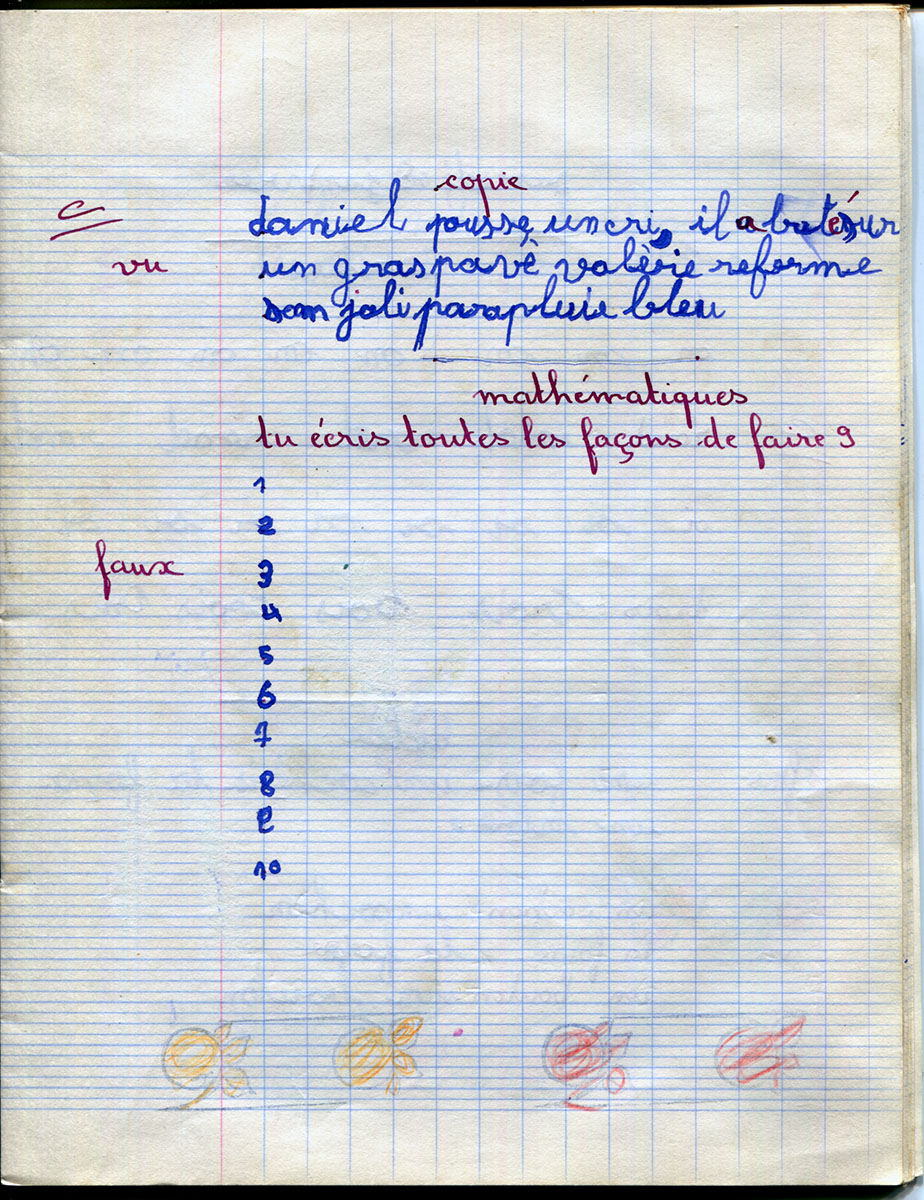 copie
C daniel pousse un cri, il a buté sur
vu un gras pavè valèrie reforme
son joli parapluie bleu
mathématiques
tu écris toutes les façons de faire 9
1
2
faux 3
4
5
6
7
8
9
10